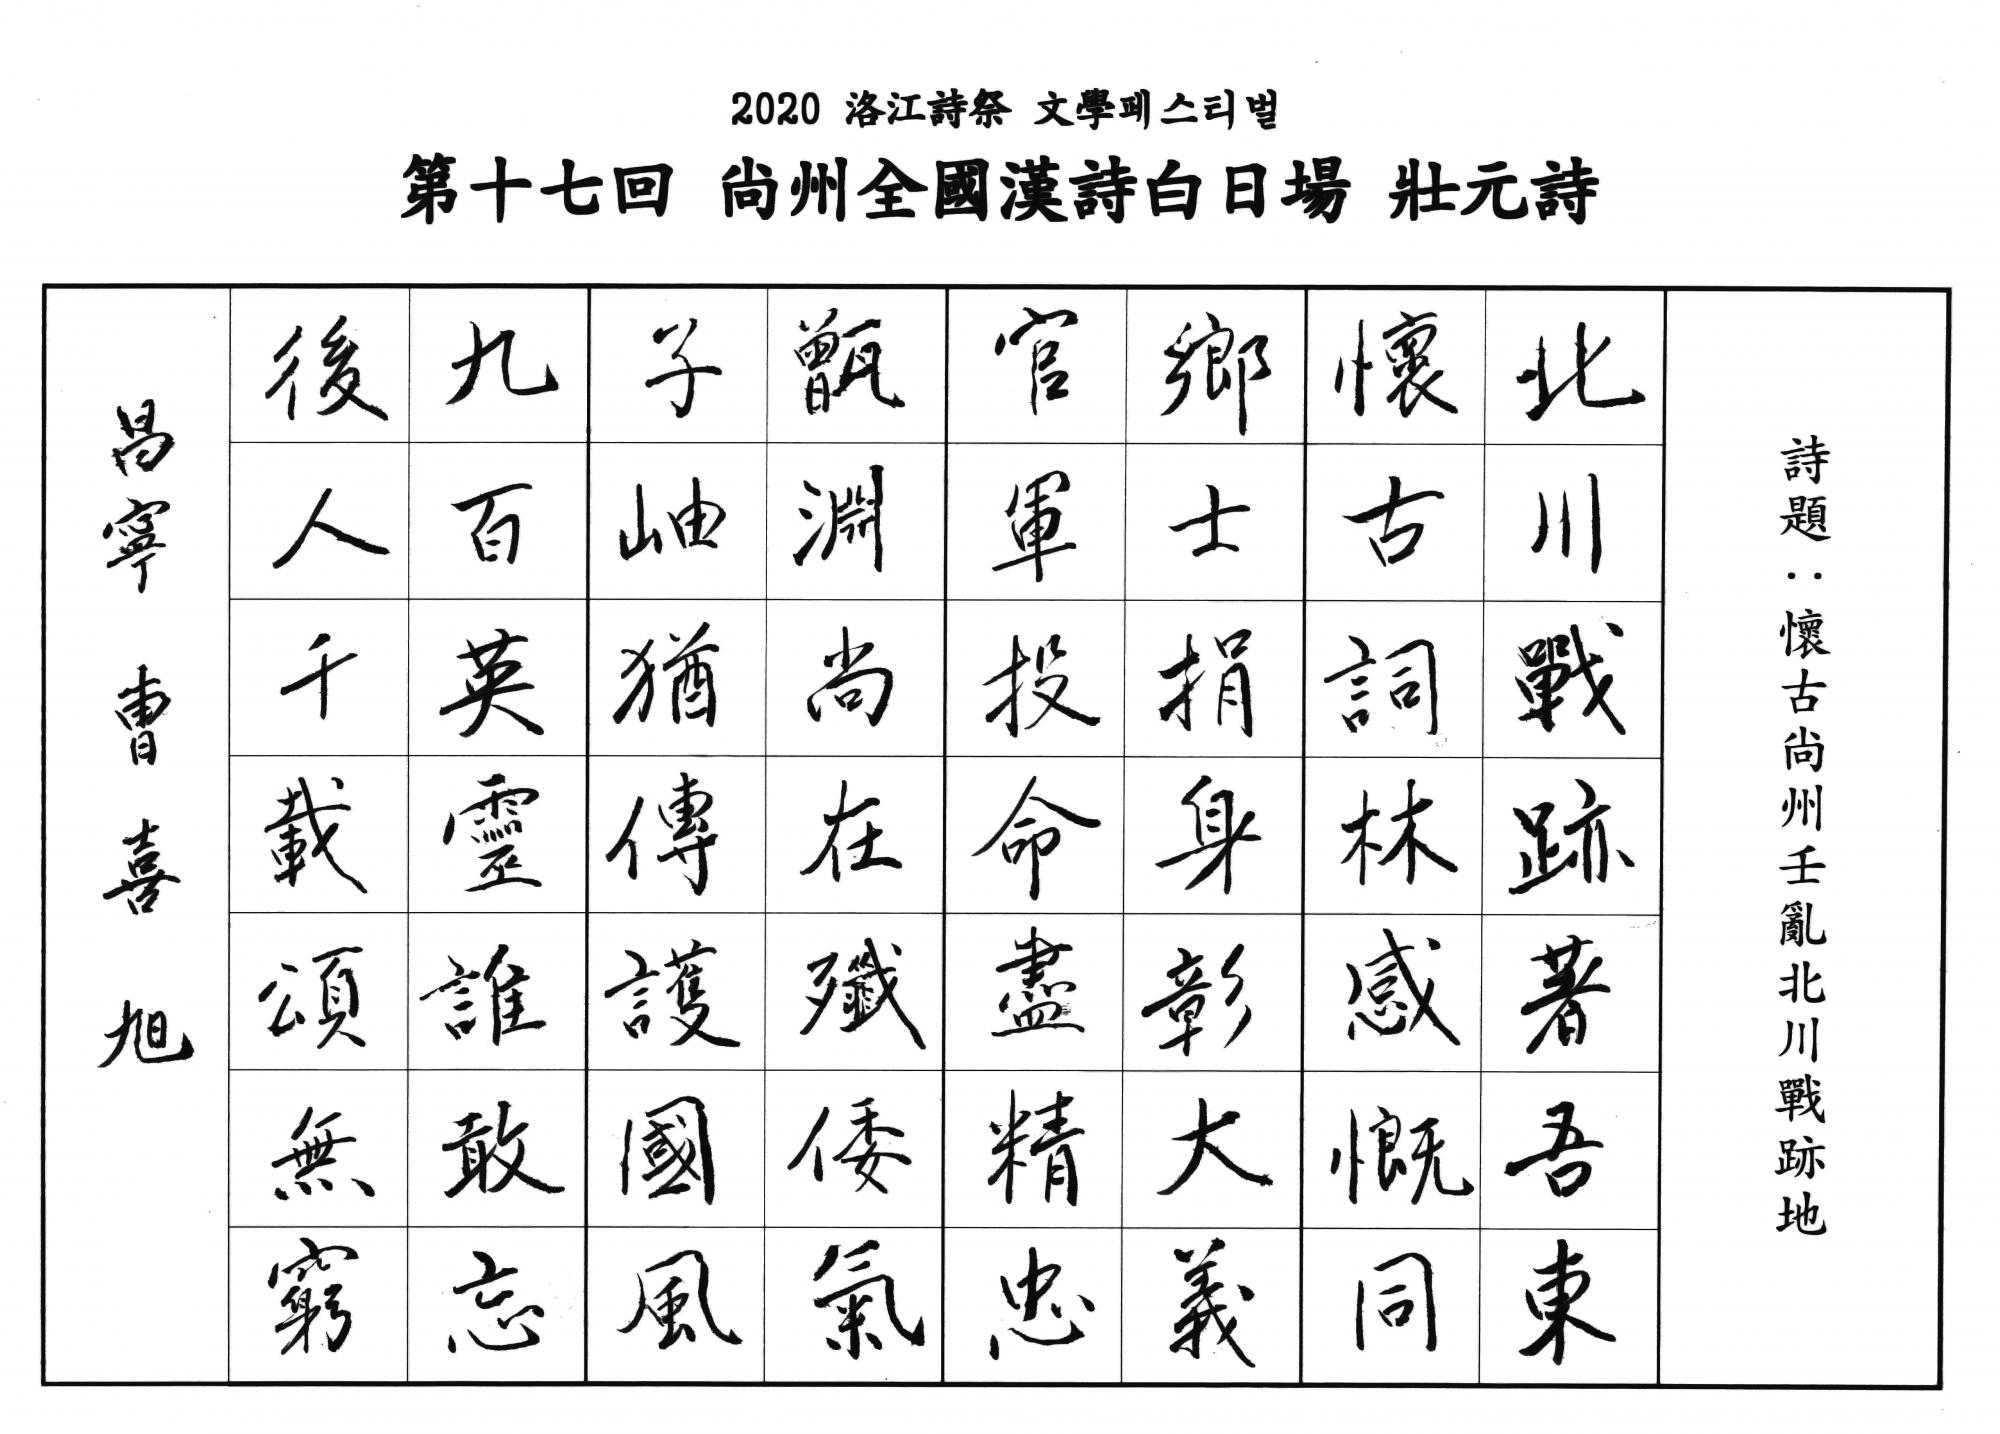 2020 洛江詩祭 文學페스티벌
第十七回 尙州全國漢詩白日場 壯元詩
詩題：懷古尙州壬亂北川戰跡地
北川戰跡著吾東
懷古詞林感慨同
鄕士捐身彰大義
官軍投命盡精忠
甑淵尙在殲倭氣
子岫猶傳護國風
九百英靈誰敢忘
後人千載頌無窮
昌寧 曺喜旭